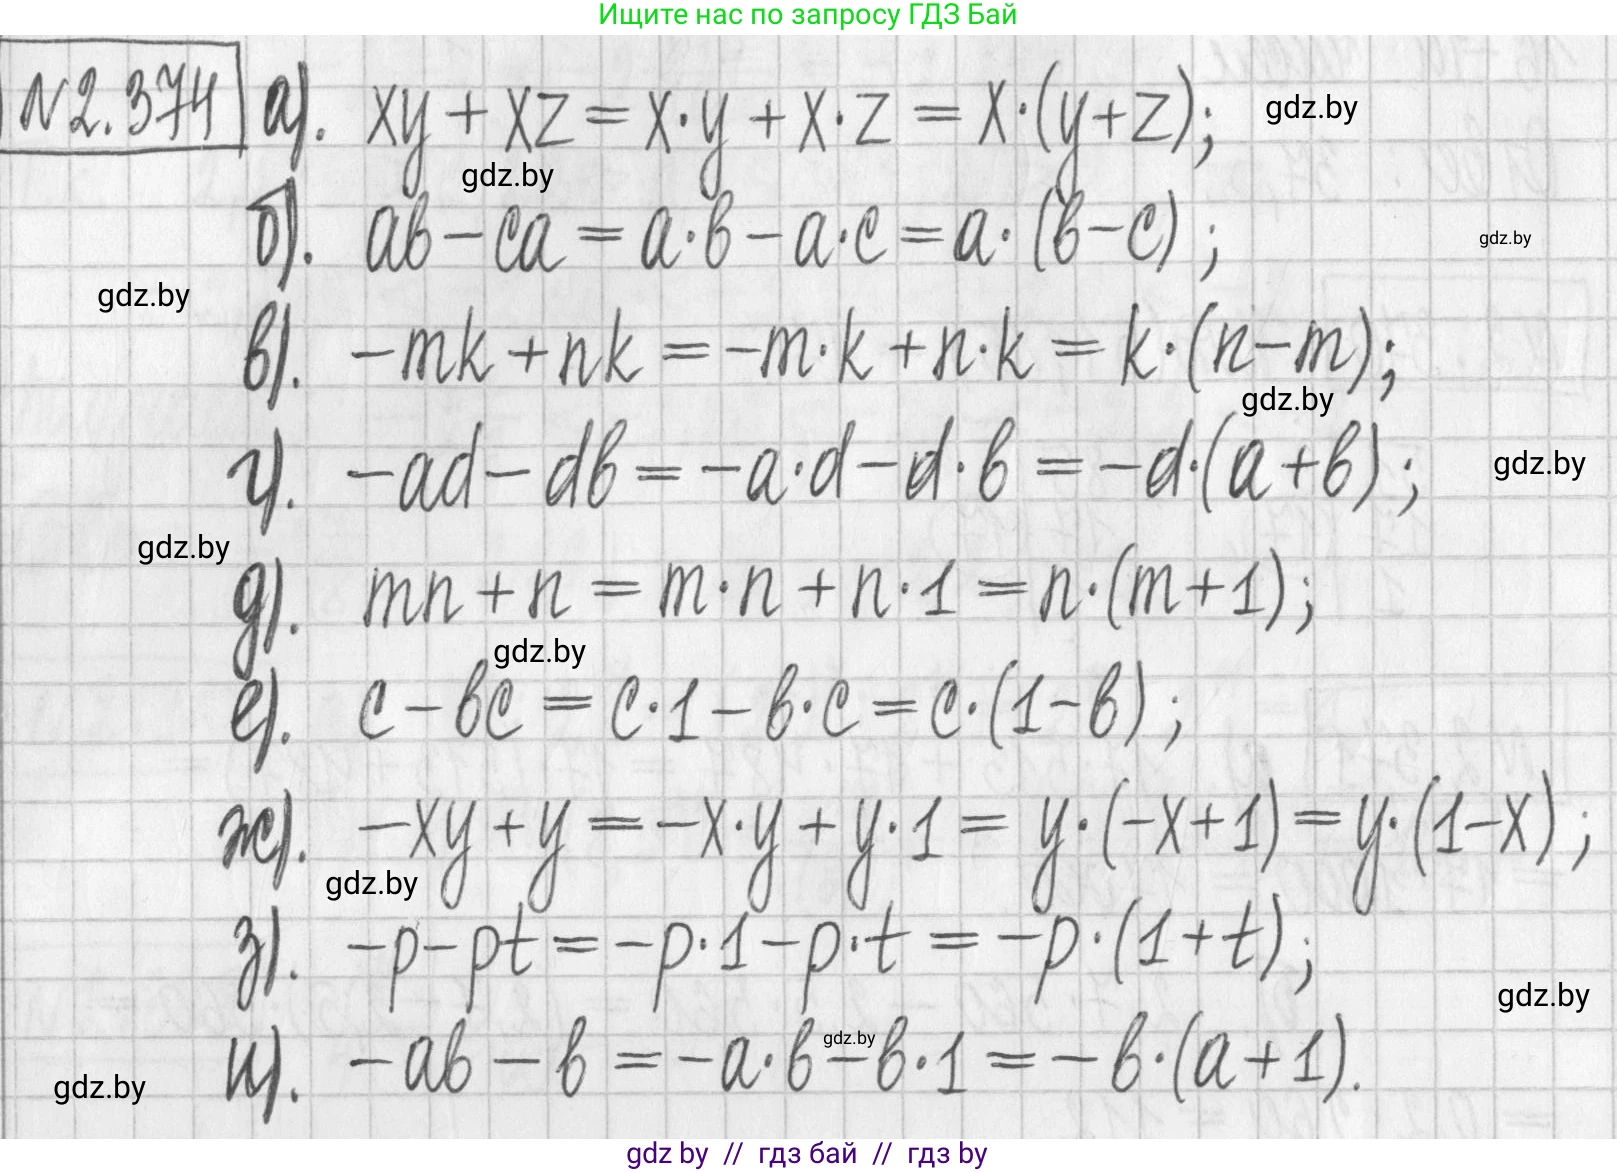 Ищите нас по запросу ГДЗ Бай
№2.374 а). xy + xz = x·y + x·z = x·(y+z); gdz.by
gdz.by
б). ab − ca = a·b − a·c = a·(b−c); gdz.by
gdz.by
в). −mk + nk = −m·k + n·k = k·(n−m);
gdz.by
г). −ad − db = −a·d − d·b = −d·(a+b); gdz.by
gdz.by
д). mn + n = m·n + n·1 = n·(m+1);
gdz.by
е). c − bc = c·1 − b·c = c·(1−b);
ж). −xy + y = −x·y + y·1 = y·(−x+1) = y·(1−x);
gdz.by
з). −p − pt = −p·1 − p·t = −p·(1+t);
gdz.by
gdz.by
и). −ab − b = −a·b − b·1 = −b·(a+1).
gdz.by
gdz by // гдз бай // гдз by